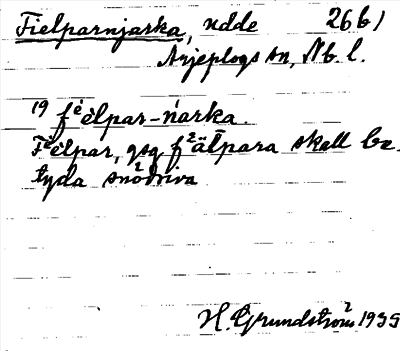 Fielparnjarka, udde 26b1
Arjeplogs sn, Nb. l.
19 fⁱèlpar-ńarka.
Fⁱèlpar, gsg fⁱäl̄para skall be-
tyda snödriva
H. Grundström 1939